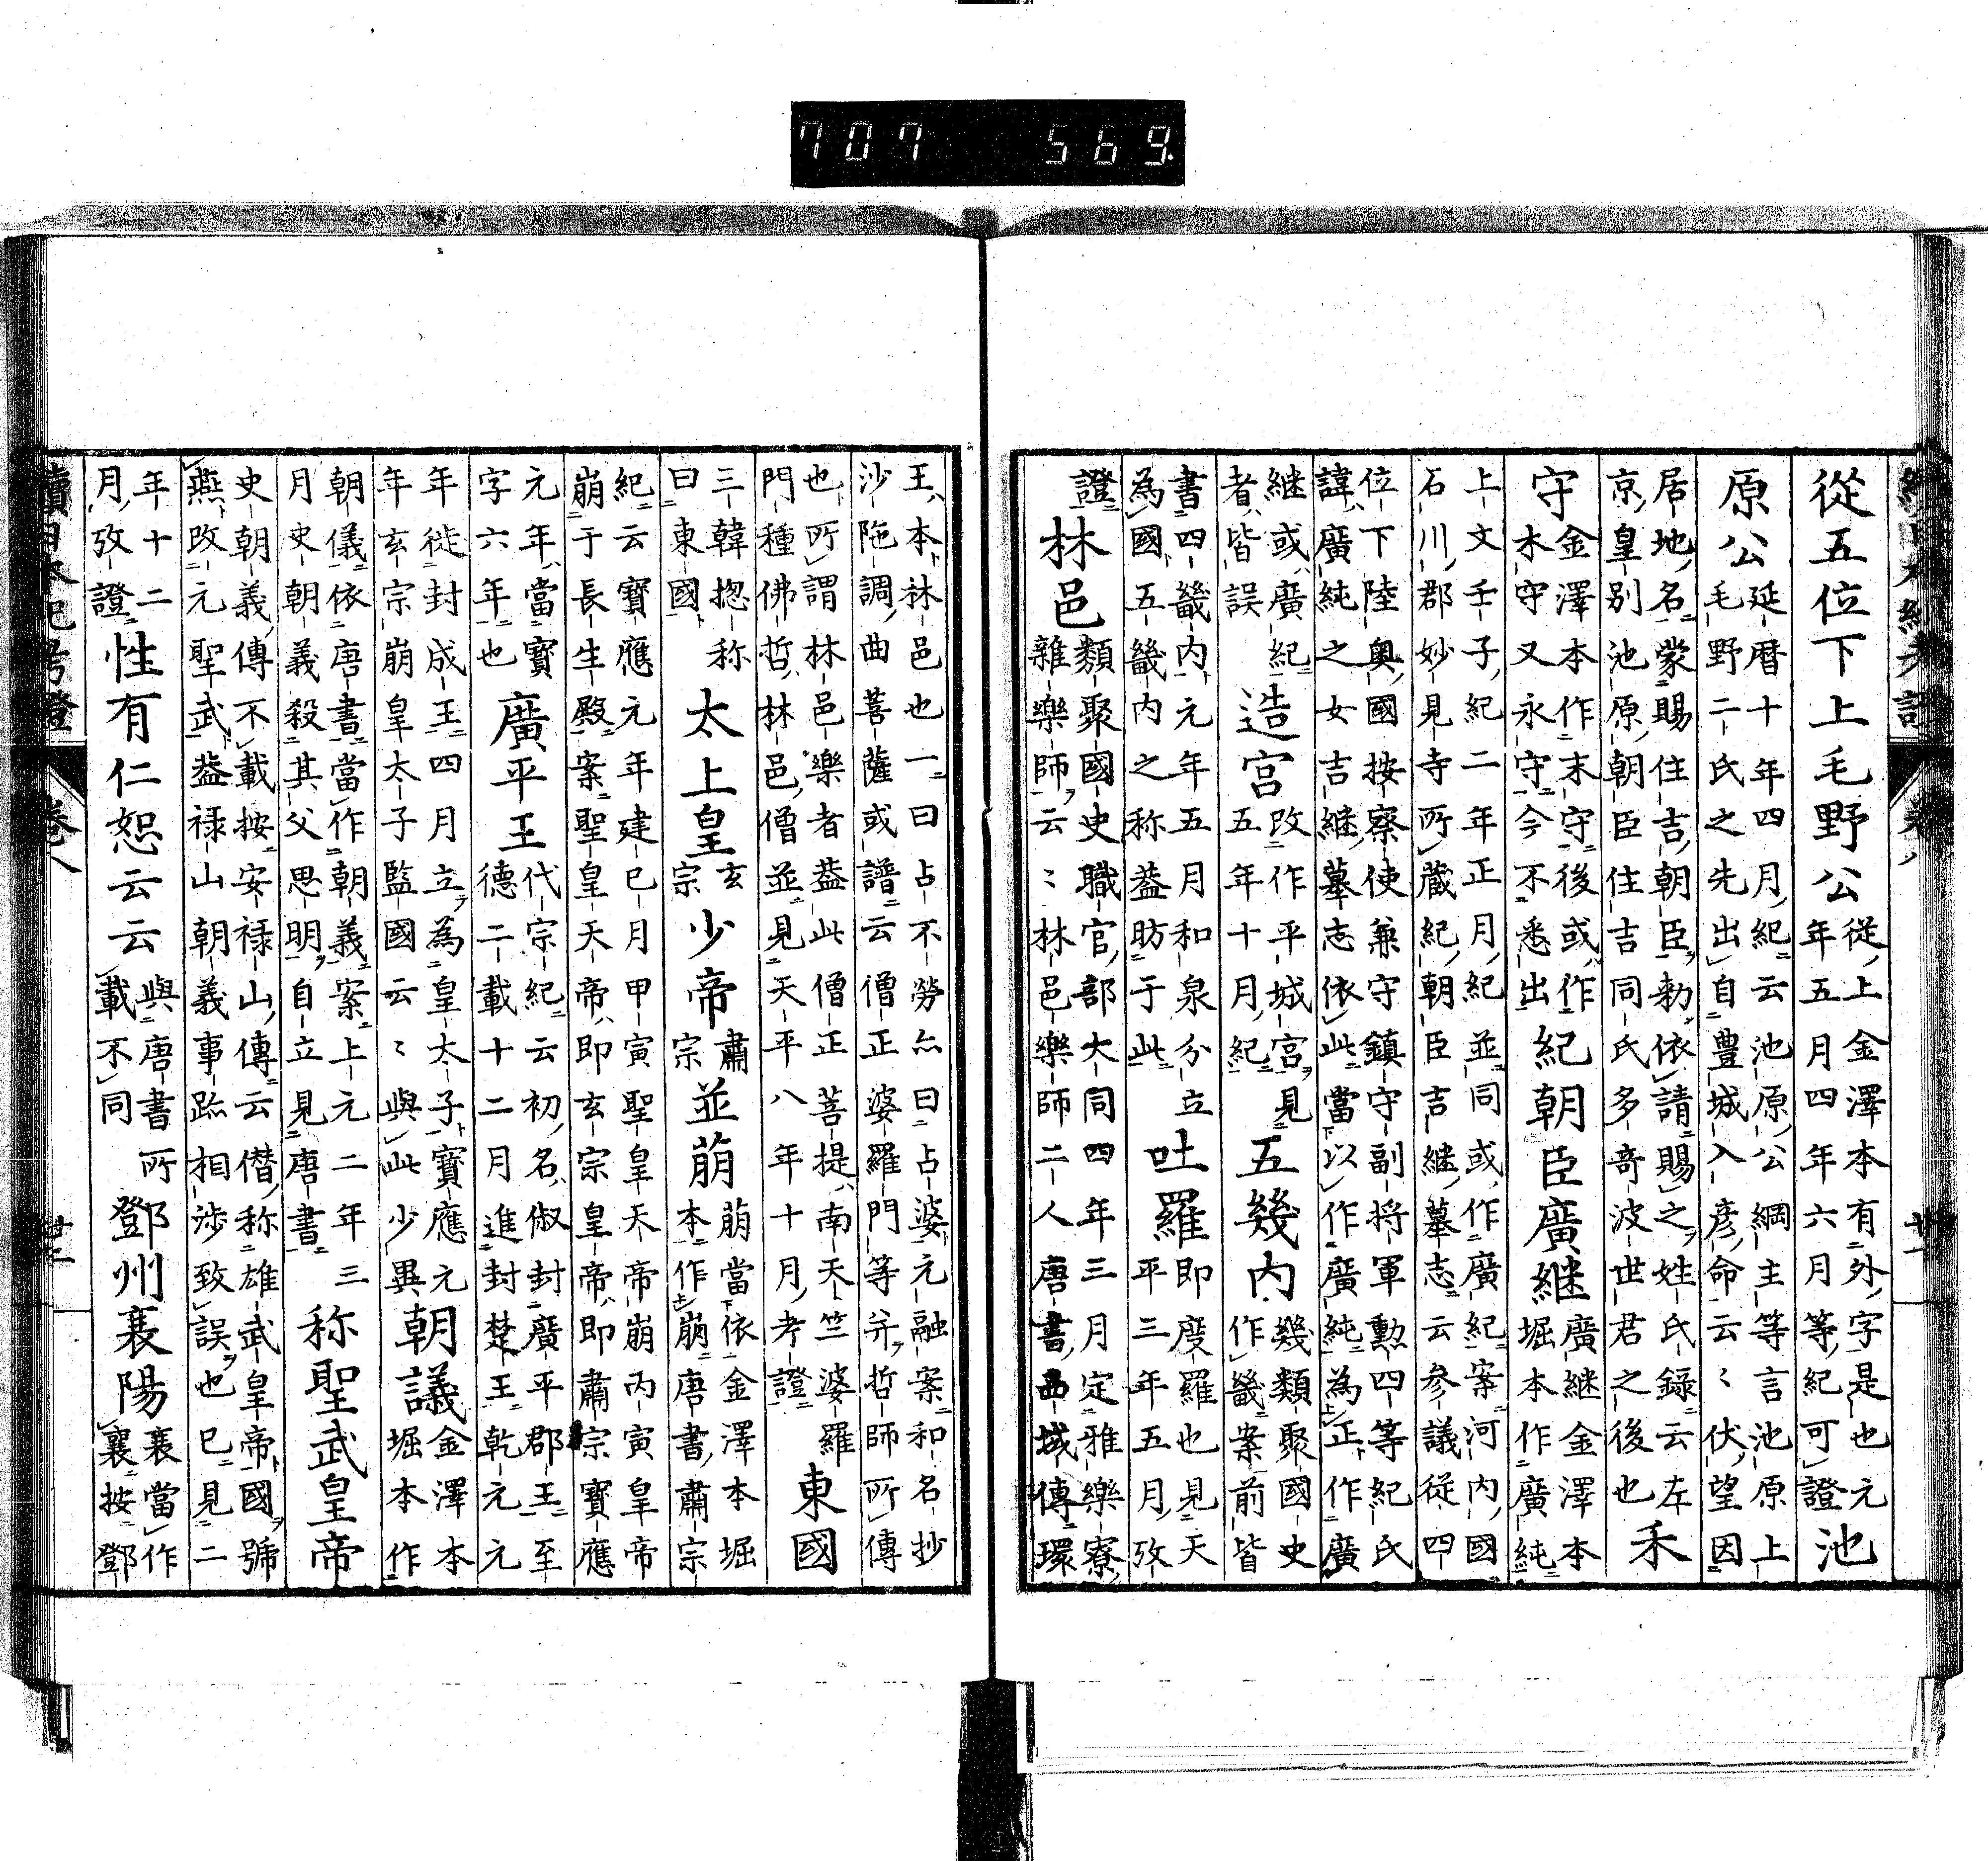 從五位下上毛野公
從上金澤本有外字是也元
年五月四年六月等紀可證
池
原公
延暦十年四月紀云池原公綱主等言池原上
毛野二氏之先出自豊城入彦命云〻伏望因
居地名蒙賜住吉朝臣勅依請賜之姓氏録云左
京皇別池原朝臣住吉同氏多奇波世君之後也
禾
守
金澤本作末守後或作
木守又永守今不悉出
紀朝臣廣継
廣継金澤本
堀本作廣純
上文壬子紀二年正月紀並同或作廣紀案河内國
石川郡妙見寺所藏紀朝臣吉継墓志云参議従四
位下陸奥國按察使兼守鎮守副将軍勲四等紀氏
諱廣純之女吉継墓志依此當以作廣純為正作廣
継或廣紀
者皆誤
造宮
改作平城宮見
五年十月紀
五幾内
幾類聚國史
作畿案前皆
書四畿内元年五月和泉分立
為國五畿内之称葢昉于此
吐羅
即度羅也見天
平三年五月攷
證
林邑
類聚國史職官部大同四年三月定雅樂寮
雜樂師云〻林邑樂師二人唐書西域傳環
王本林邑也一曰占不勞亦曰占婆元融案和名抄
沙陁調曲菩薩或譜云僧正婆羅門等并哲師所傳
也所謂林邑樂者葢此僧正菩提南天竺婆羅
門種佛哲林邑僧並見天平八年十月考證
東國
三韓揔称
曰東國
太上皇
玄宗
少帝
肅宗
並崩
崩當依金澤本堀
本作崩唐書肅宗
紀云寶應元年建巳月甲寅聖皇天帝崩丙寅皇帝
崩于長生殿案聖皇天帝即玄宗皇帝即肅宗寶應
元年當寶
字六年也
廣平王
代宗紀云初名俶封廣平郡王至
德二載十二月進封楚王乾元元
年徙封成王四月立為皇太子寶應元
年玄宗崩皇太子監國云〻與此少異
朝議
金澤本
堀本作
朝儀依唐書當作朝義案上元二年三
月史朝義殺其父思明自立見唐書
称聖武皇帝
史朝義傳不載按安禄山傳云僣称雄武皇帝國號
燕改元聖武葢禄山朝義事跡相渉致誤也已見二
年十二
月攷證
性有仁恕云云
與唐書所
載不同
鄧州襄陽
襄當作
襄按鄧
續日本紀考證
卷八
707 569